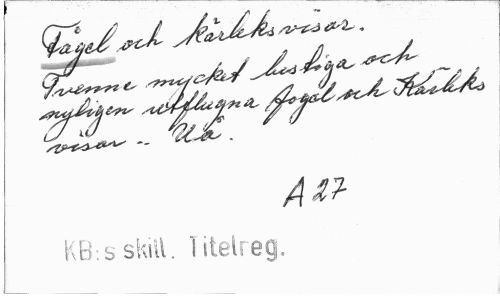 Fågel och kärleksvisor.
Tvenne mycket lustiga och
nyligen utflugna fogel och Kärleks
visor .. Uå.
A 27
KB:s skill. Titelreg.